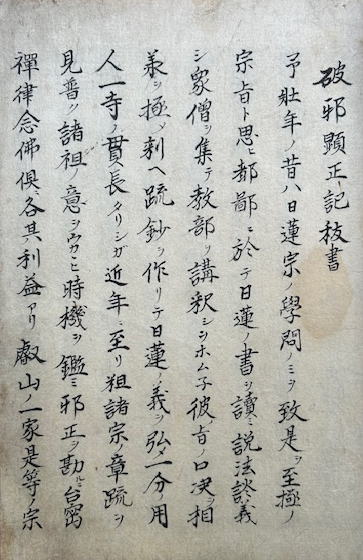 破邪顕正記抜書
予壮年ノ昔ハ日蓮宗ノ學問ノミヲ致是ヲ至極ノ
宗旨ト思ヒ都鄙ニ於テ日蓮ノ書ヲ讀ミ説法談義
シ衆僧ヲ集テ教部ヲ講釈シシヲホム子彼旨ノ口决ヲ相
承シ極メ剰ヘ疏鈔ヲ作リテ日蓮ノ義ヲ弘メ一分用
人一寺ノ貫長タリシガ近年ニ至リ粗諸宗ノ章疏ヲ
見普ク諸祖ノ意ヲウカヒ時機ヲ鑑ミ邪正ヲ勘ルニ台密
禪律念佛倶ニ各其利益アリ叡山ノ一家是等ノ宗